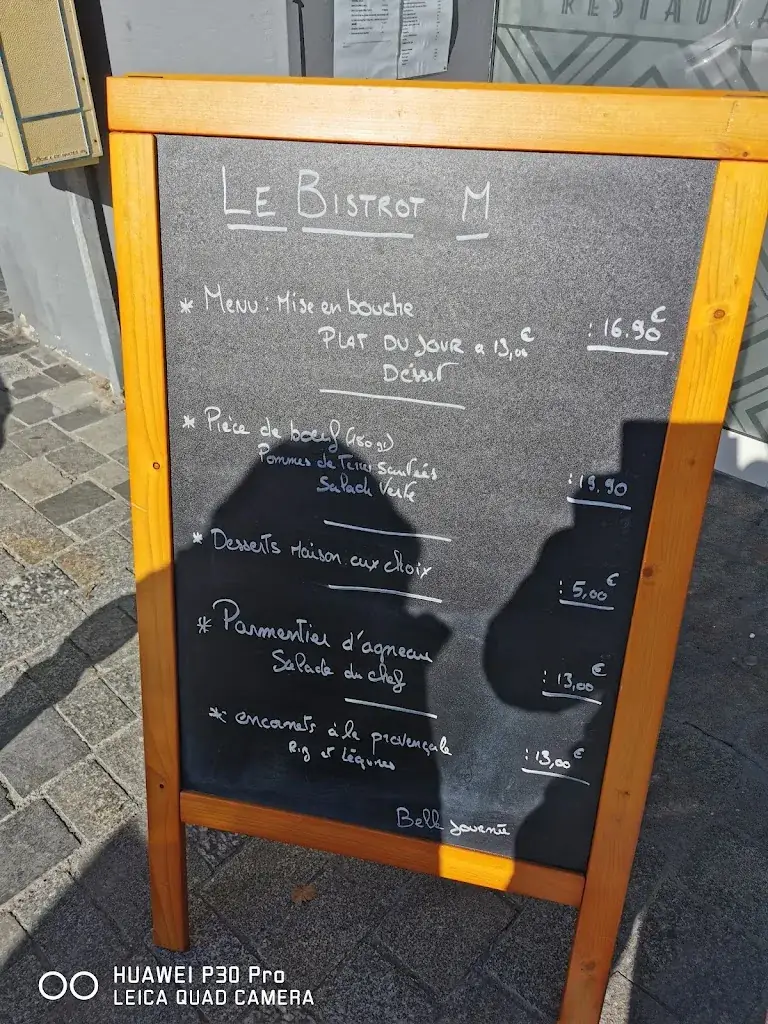 RESTAURA
LE BISTROT M
* Menu : Mise en bouche
PLAT DU JOUR a 13,00€ : 16.90€
Déssert
* Pièce de boeuf (180 gr)
Pommes de Terres Sautées
Salade Verte : 19.90
* Desserts Maison aux choix : 5,00€
* Parmentier d'agneau
Salade du chef : 13,00€
* encornets à la provençale
Riz et Légumes : 13,00€
Belle journée
HUAWEI P30 Pro
LEICA QUAD CAMERA